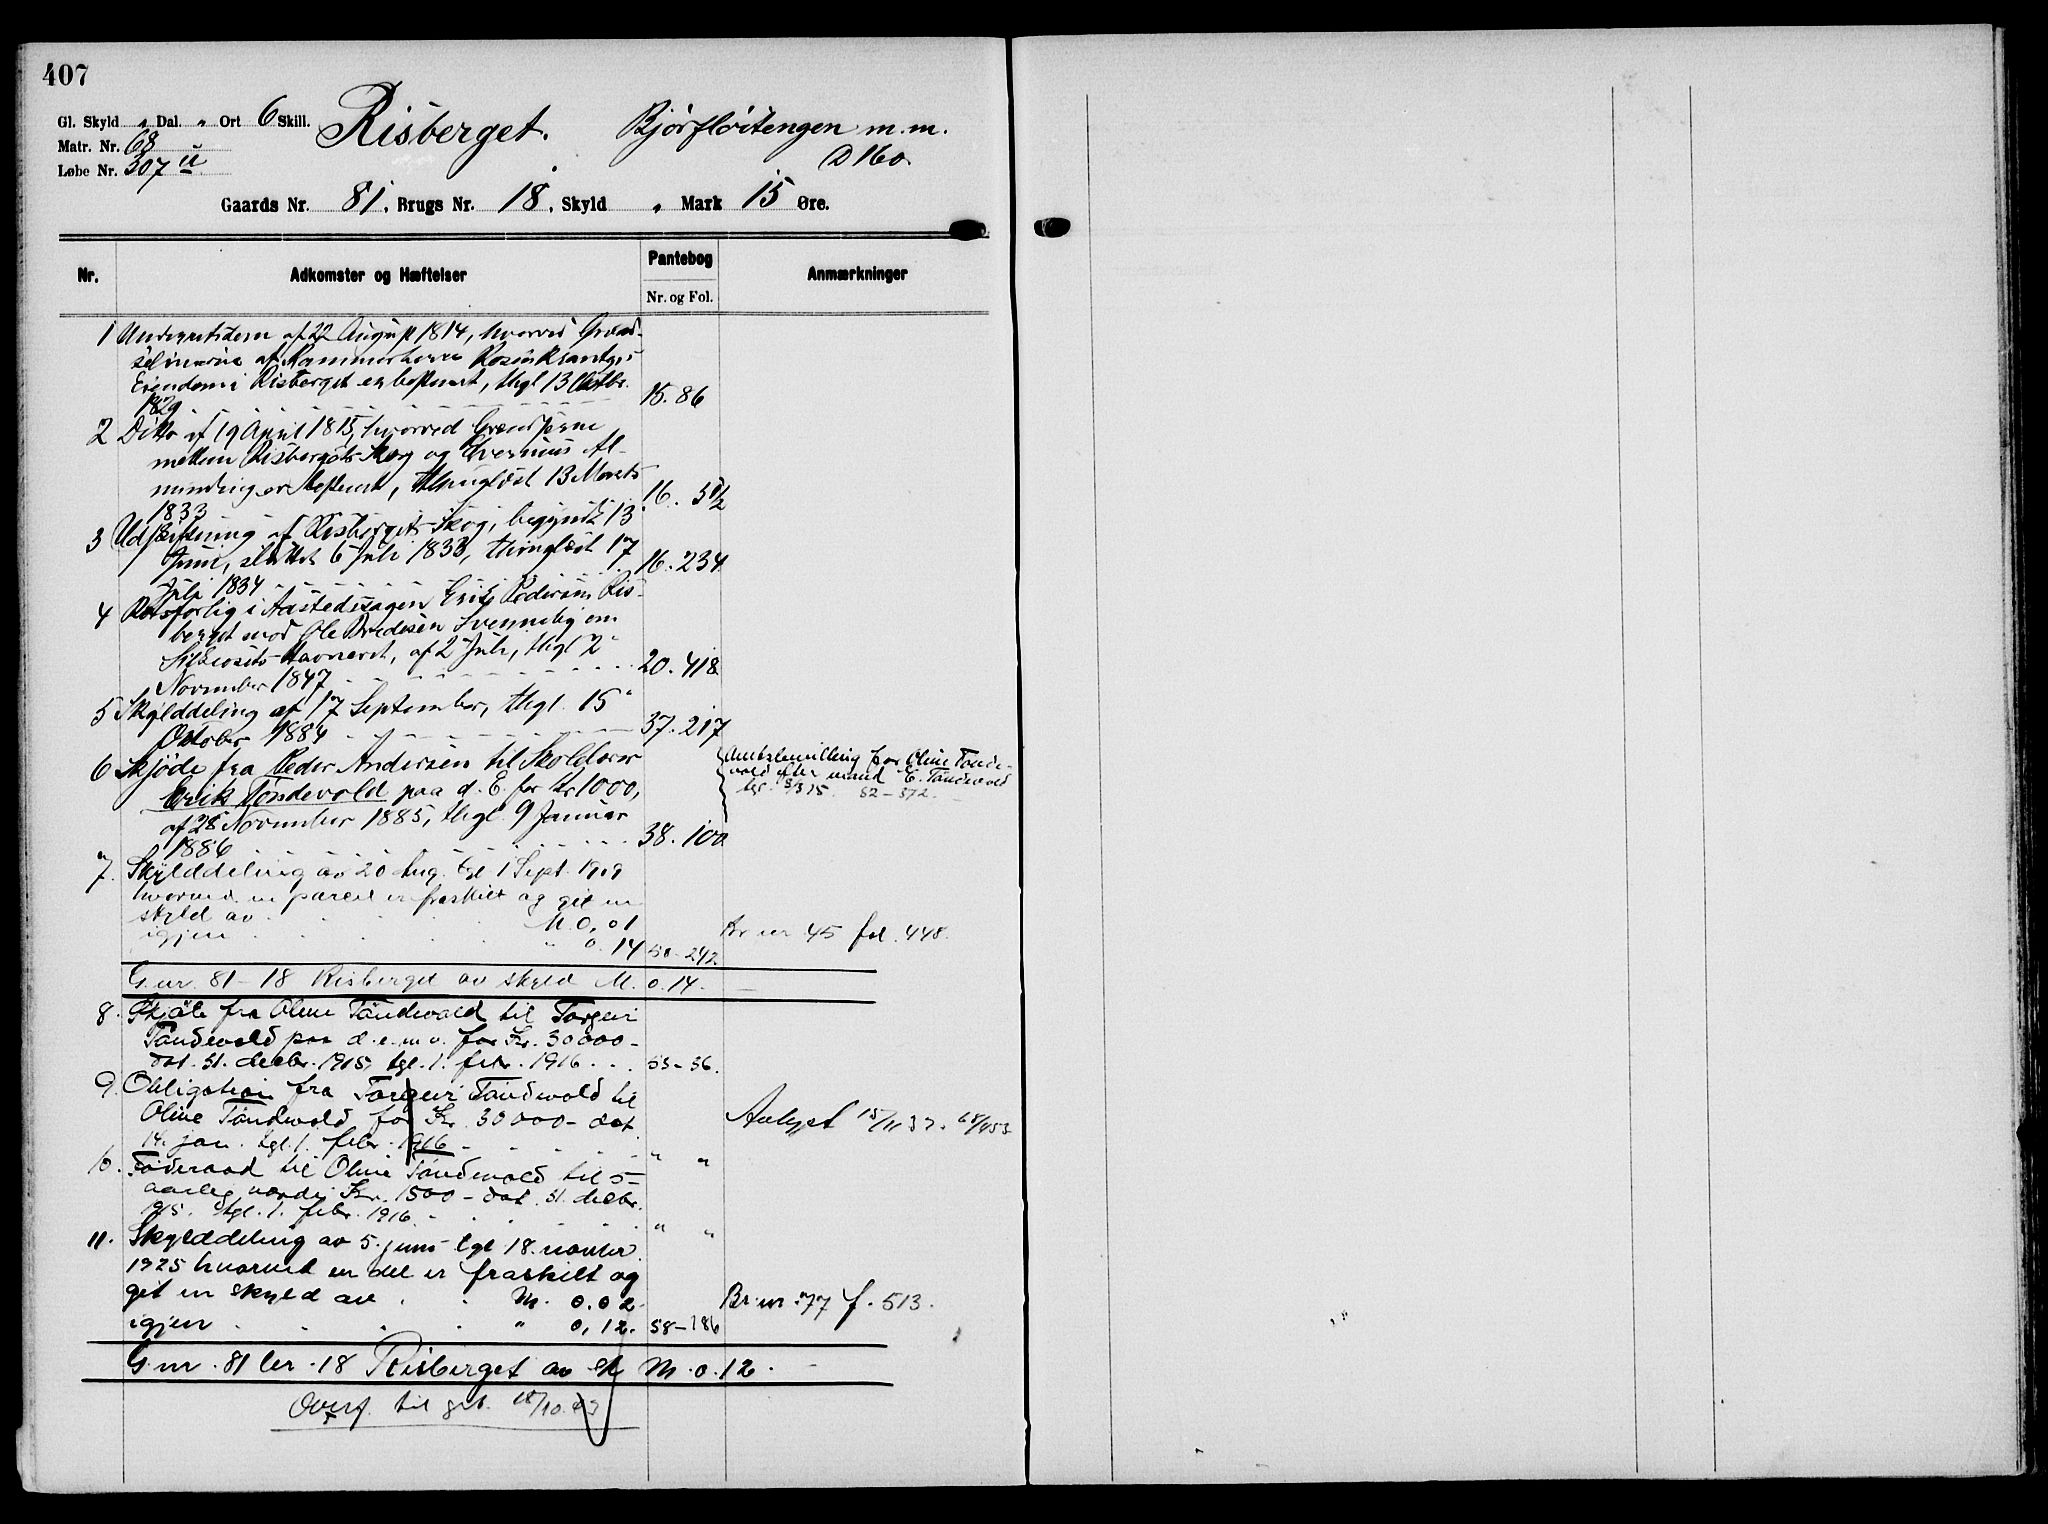 407
Gl. Skyld „ Dal. „ Ort 6 Skill. Risberget. Bjørfløitengen m.m.
Matr. Nr. 68 D 160.
Løbe Nr. 307 u
Gaards Nr. 81, Brugs Nr. 18, Skyld „ Mark 15 Øre.
Nr. Adkomster og Hæftelser Pantebog Anmærkninger
Nr. og Fol.
1 Underretsdom af 22 August 1814, hvorved Grænd-
af Kammerherre Rosenkrantzes
Eiendom i Risberget er bestemt, thgl 13 Octbr.
1829 15. 86
2 Ditto af 19 April 1815, hvorved Grændserne
mellem Risbergets Skog og Al-
minding er bestemt, thinglæst 13 Marts
1833 16. 5 1/2
3 Udskiftning af Risbergets Skog, begyndt 13
Juni, sluttet 6 Juli 1833, thinglæst 17
Juli 1834 16. 234
4 Retsforlig i Aastedssagen Erik Pedersen Ris-
berget mod Ole Bredesen Svennebÿ om
Havneret, af 2 Juli, thgl 2
November 1847 20. 418
5 Skylddeling af 17 September, thgl. 15
October 1884 37. 217
6 Skjøde fra Peder Andersen til Skolelærer
Erik Tøndevold paa d. E. for Kr 1000,
af 28 November 1885, thgl 9 Januar
1886 38. 100
Amtsbevilling for Oline Tønde-
vold efter mand E. Tøndevold
tgl. 3/3 15. 52 - 572.
7. Skylddeling av 20 Aug. tgl 1 Sept. 1909
hvorved en parcel er fraskilt og git en
skyld av M. 0,01 Br nr 45 fol. 448.
igjen „ 0.14 50 - 242
G.nr. 81 - 18 Risberget av skyld M. 0.14.
8. Skjøte fra Oline Tøndevold til Torgeir
Tøndevold paa d. e. m. v. for Kr. 30000 -
dat. 31. decbr. 1915, tgl. 1. febr. 1916 . . . 53 - 36.
9. Obligation fra Torgeir Tøndevold til
Oline Tøndevold for Kr. 30 000 - dat. Avlyst 15/11 37. 68/453
14. jan. tgl. 1. febr. 1916 „ „
10. Føderaad til Oline Tøndevold til 5-
aarleg værdi Kr. 1500 - dat. 31. decbr.
1915. tgl. 1. febr. 1916 „ „
11. Skylddeling av 5. juni tgl 18. novbr.
1925 hvorved en del er fraskilt og
git en skyld av M. 0.02. Br. nr. 77 f. 513.
igjen „ 0,12. 58 - 186
G.nr. 81 br. 18 Risberget av sk M. 0.12.
Overf. til 18/10. 43